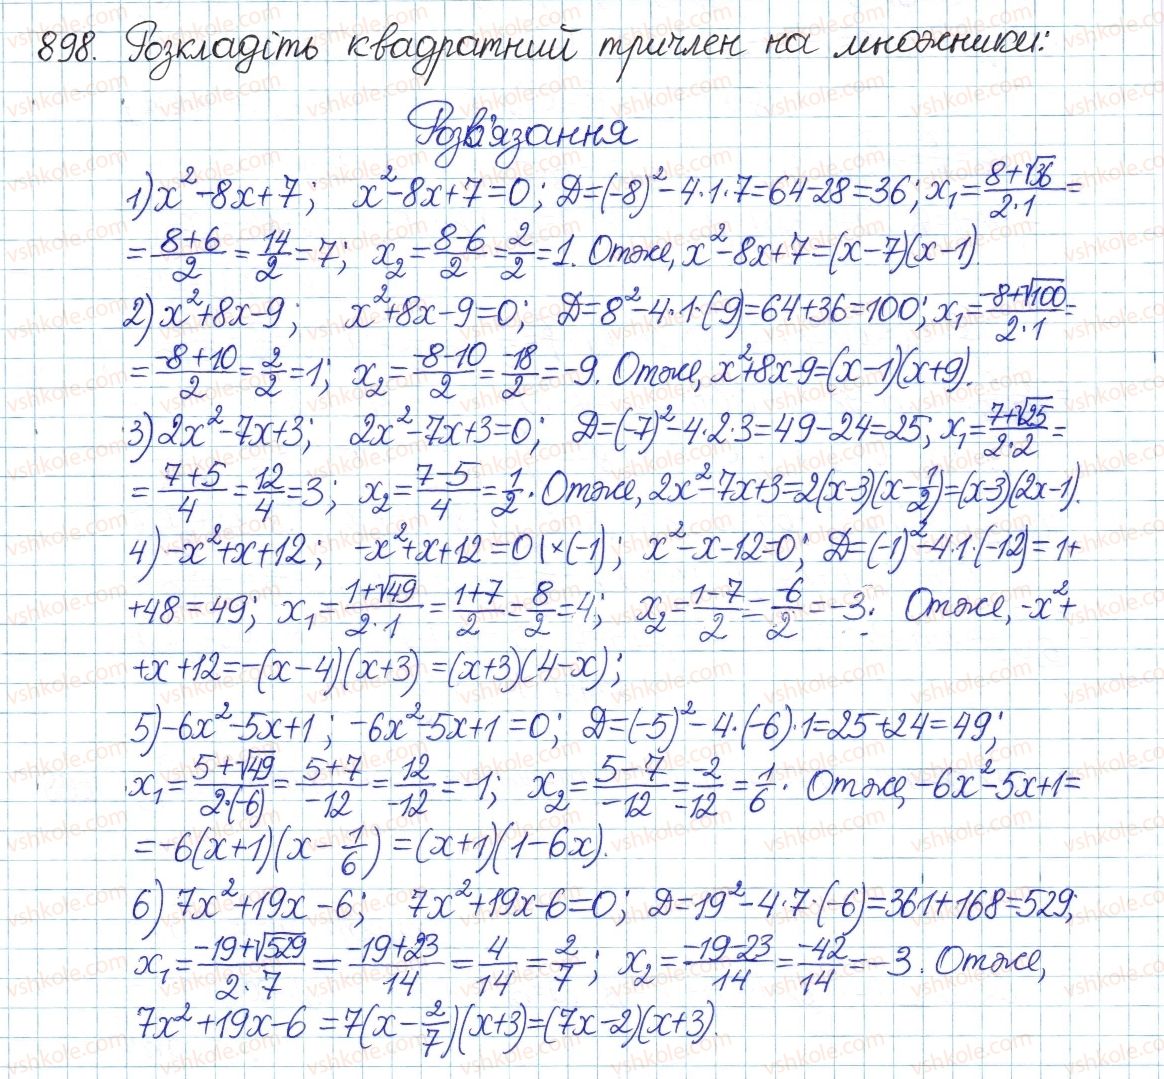 898. Розкладіть квадратний тричлен на множники:
Розв'язання
1) x²-8x+7; x²-8x+7=0; D=(-8)²-4·1·7=64-28=36; x₁=(8+√36)/(2·1)=
=(8+6)/2=14/2=7; x₂=(8-6)/2=2/2=1. Отже, x²-8x+7=(x-7)(x-1)
2) x²+8x-9; x²+8x-9=0; D=8²-4·1·(-9)=64+36=100; x₁=(-8+√100)/(2·1)=
=(-8+10)/2=2/2=1; x₂=(-8-10)/2=-18/2=-9. Отже, x²+8x-9=(x-1)(x+9).
3) 2x²-7x+3; 2x²-7x+3=0; D=(-7)²-4·2·3=49-24=25; x₁=(7+√25)/(2·2)=
=(7+5)/4=12/4=3; x₂=(7-5)/4=1/2. Отже, 2x²-7x+3=2(x-3)(x-1/2)=(x-3)(2x-1).
4) -x²+x+12; -x²+x+12=0|×(-1); x²-x-12=0; D=(-1)²-4·1·(-12)=1+
+48=49; x₁=(1+√49)/(2·1)=(1+7)/2=8/2=4; x₂=(1-7)/2=-6/2=-3. Отже, -x²+
+x+12=-(x-4)(x+3)=(x+3)(4-x);
5) -6x²-5x+1; -6x²-5x+1=0; D=(-5)²-4·(-6)·1=25+24=49;
x₁=(5+√49)/(2·(-6))=(5+7)/-12=12/-12=-1; x₂=(5-7)/-12=-2/-12=1/6. Отже, -6x²-5x+1=
=-6(x+1)(x-1/6)=(x+1)(1-6x).
6) 7x²+19x-6; 7x²+19x-6=0; D=19²-4·7·(-6)=361+168=529;
x₁=(-19+√529)/(2·7)=(-19+23)/14=4/14=2/7; x₂=(-19-23)/14=-42/14=-3. Отже,
7x²+19x-6=7(x-2/7)(x+3)=(7x-2)(x+3).